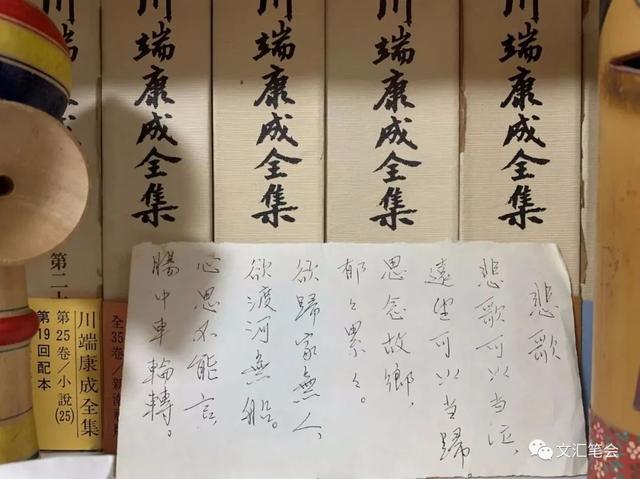 川端康成全集
川端康成全集
川端康成全集
川端康成全集
端康成全集
第二十
悲歌
悲歌可以当泣,
遠望可以当歸。
思念故鄉,
郁々累々。
欲歸家無人,
欲渡河無船。
心思不能言,
腸中車輪轉。
全35卷/新潮
川端康成全集
第25卷/小說(25)
第19回配本
文汇笔会